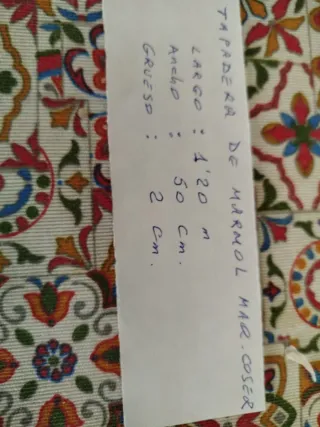 TAPADERA DE MARMOL MAQ. COSER
LARGO : 1'20 m
ANCHO : 50 cm.
GRUESO : 2 cm.